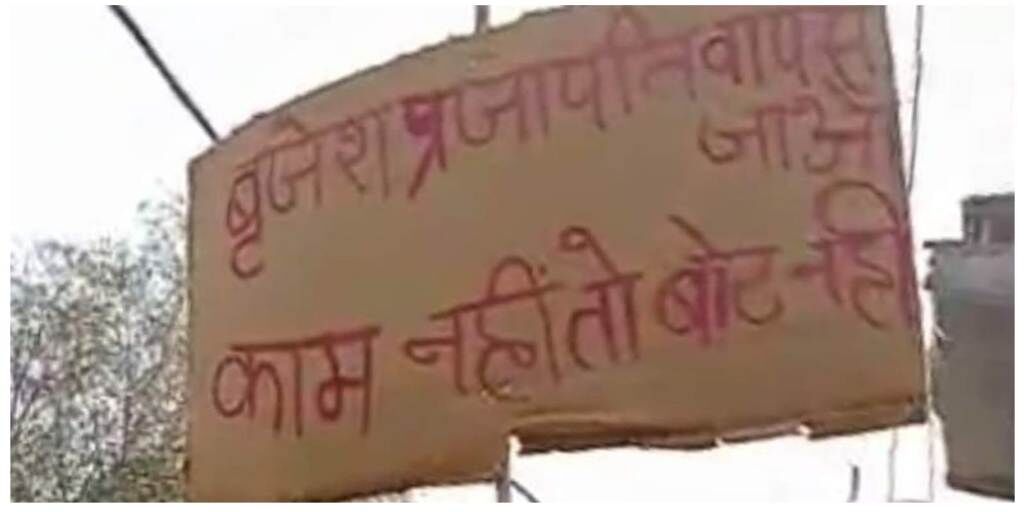 बृजेश प्रजापति वापस
जाओ
काम नहीं तो बोट नही